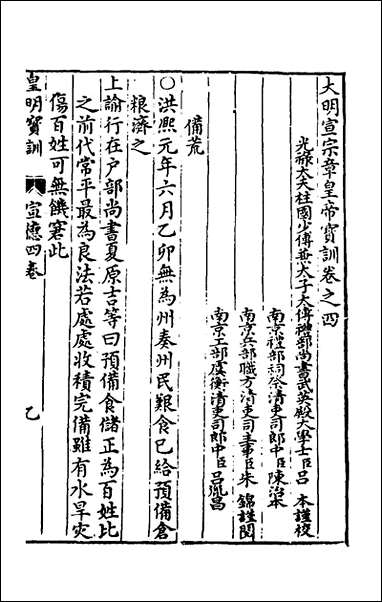 大明宣宗章皇帝寶訓卷之四
光祿大夫柱國少傅兼太子太傅禮部尚書武英殿大學士臣呂　本謹校
南京禮部祠祭清吏司郎中臣陳治本
南京兵部職方清吏司主事臣朱　錦謹閱
南京工部虞衡清吏司郎中臣呂胤昌
備荒
〇洪熙元年六月乙卯無為州奏州民艱食已給預備倉
粮濟之
上諭行在户部尚書夏原吉等曰預備食儲正為百姓比
之前代常平最為良法若處處收積完備雖有水旱灾
傷百姓可無饑窘此
皇明寶訓　宣德四卷　乙